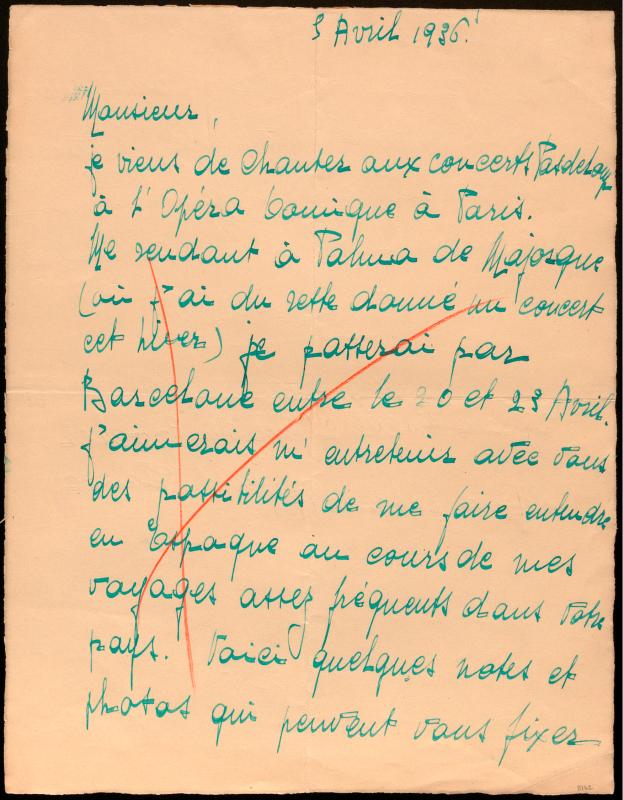 3 Avril 1936.
Monsieur,
je viens de chanter aux concerts Pasdeloup
à l'Opéra Comique à Paris.
Me rendant à Palma de Majorque
(où j'ai du reste donné un concert
cet hiver) je passerai par
Barcelone entre le 20 et 23 Avril.
J'aimerais m'entretenir avec vous
des possibilités de me faire entendre
en Espagne au cours de mes
voyages assez fréquents dans votre
pays. Voici quelques notes et
photos qui peuvent vous fixer